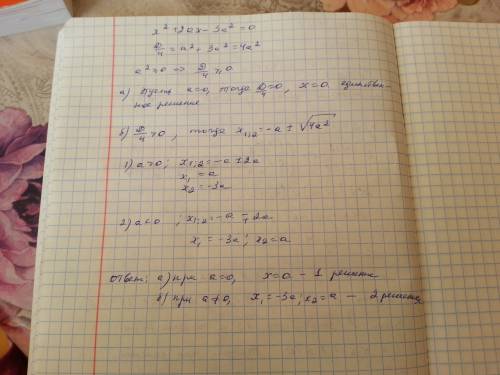 x² + 2ax - 3a² = 0
D/4 = a² + 3a² = 4a²
a² ≥ 0 => D/4 ≥ 0
а) Пусть a=0, тогда D/4 = 0, x=0 единствен-
ное решение
б) D/4 > 0, тогда x₁,₂ = -a ± √4a²
1) a>0; x₁,₂ = -a ± 2a
x₁ = a
x₂ = -3a
2) a<0 ; x₁,₂ = -a ∓ 2a
x₁ = -3a; x₂ = a
Ответ: а) при a=0, x=0 - 1 решение
б) при a≠0, x₁=-3a, x₂=a - 2 решения